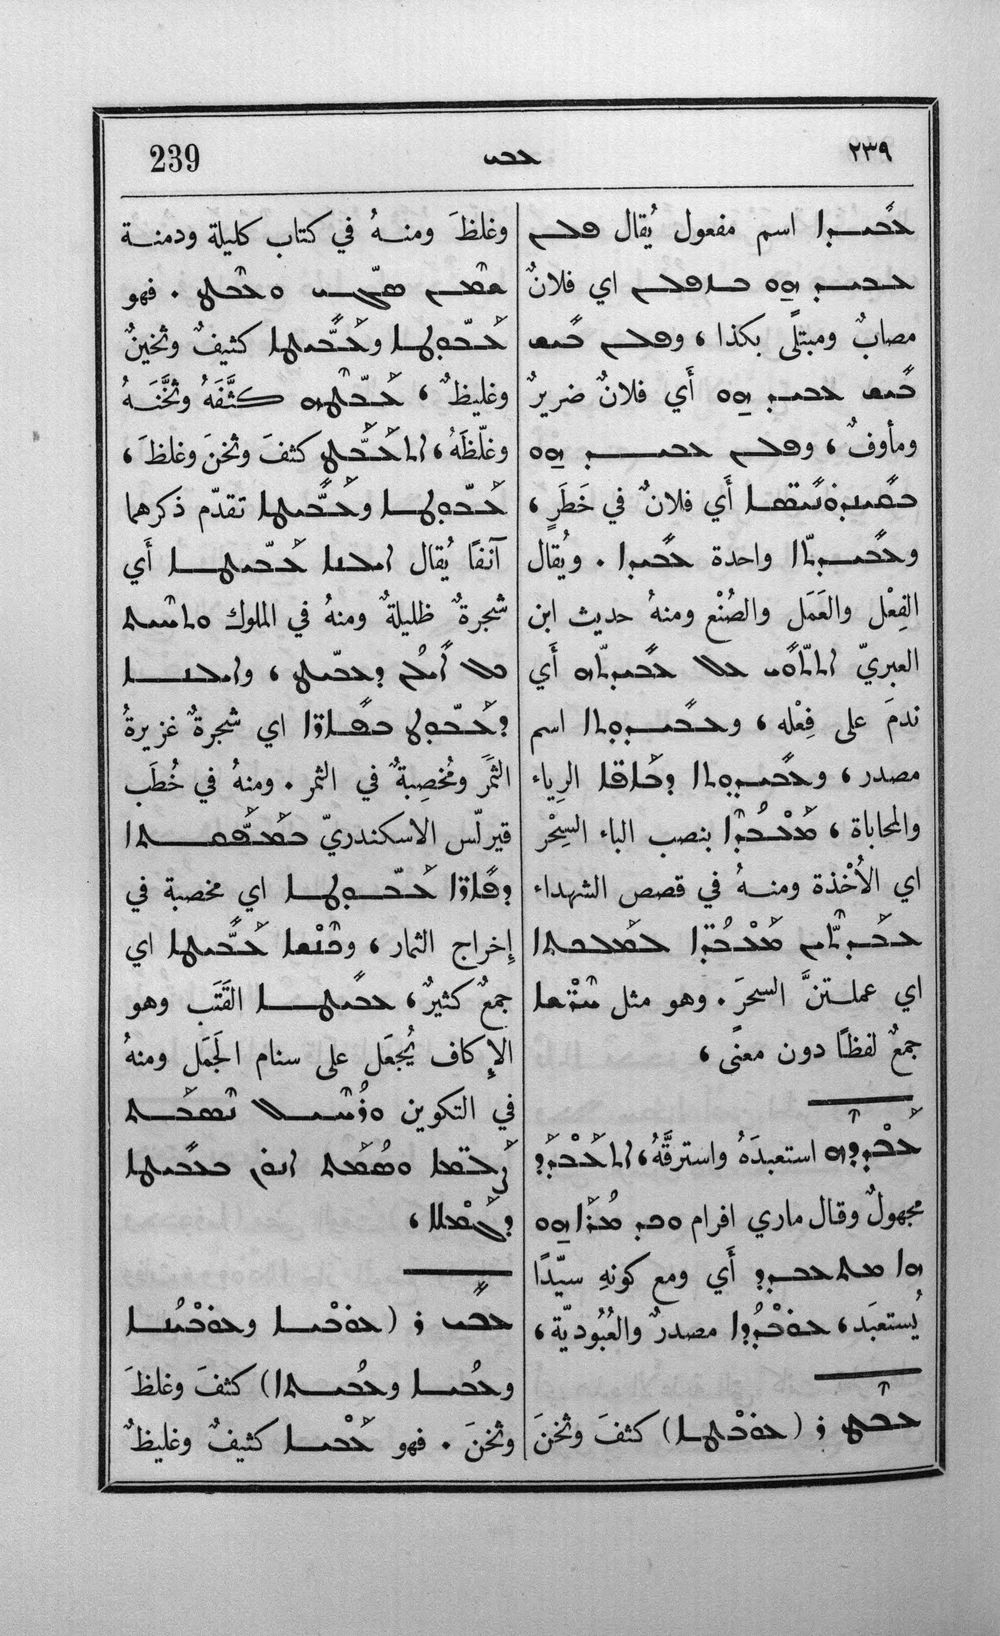 ٢٣٩
ܥܒܝ
239
ܥܒܝܕܐ اسم مفعول يُقال ܦܠܢ
ܥܒܝܕ ܗܘ ܒܐܦܠܢ اي فلانٌ
مصابٌ ومبتلًى بكذا ، وܦܠܢ ܒܝܫ
ܒܝܫ ܥܒܝܕ ܗܘ أَي فلانٌ ضريرٌ
ومأوفٌ ، وܦܠܢ ܥܒܝܕ ܗܘ
ܒܩܝܢܕܘܢܘܣ أَي فلانٌ في خَطَرٍ ،
وܥܒܝܕܬܐ واحدة ܥܒܝܕܐ . ويُقال
الفِعْل والعَمَل والصُنْع ومنهُ حديث ابن
العبريّ ܐܬܬܘܝ ܥܠ ܥܒܝܕܬܗ أَي
ندمَ على فِعْله ، وܥܒܝܕܘܬܐ اسم
مصدر ، وܥܒܝܕܘܬܐ ܕܒܐܦܐ الرِياء
والمحاباة ، ܡܥܒܕܐ بنصب الباء السِحْر
اي الأُخْذة ومنهُ في قصص الشهداء
ܥܒܕܬܝܢ ܡܥܒܕܐ ܠܡܠܟܬܐ
اي عملـتنَّ السحرَ . وهو مثل ܚܪܫܐ
جمعٌ لفظًا دون معنًى ،
ܥܒܕܗ استعبدَهُ واسترقَّهُ ، ܐܬܥܒܕ
مجهولٌ وقال ماري افرام ܘܟܕ ܡܪܐ ܗܘ
ܗܐ ܡܬܥܒܕ أَي ومع كونهِ سيّدًا
يُستعبَد ، ܥܘܒܕܐ مصدرٌ والعُبُوديّة ،
ܥܒܛ ܙ (ܥܘܒܛܐ) كثفَ وثخنَ
وغلظَ ومنـهُ في كتاب كليلة ودمنـة
ܩܛܡ ܣܓܝ ܘܥܒܛ . فهو
ܥܒܘܛܐ وܥܒܝܛܐ كثيفٌ وثخينٌ
وغليظٌ ، ܥܒܛܗ كثَّفَهُ وثخَّنَـهُ
وغلّظَهُ ، ܐܬܥܒܛ كثفَ وثخنَ وغلظَ ،
ܥܒܘܛܐ وܥܒܝܛܐ تقدّم ذكرهما
آنفًا يُقال ܐܝܠܢܐ ܥܒܝܛܐ أَي
شجرةٌ ظليلةٌ ومنهُ في الملوك ܘܬܚܝܬ
ܟܠ ܐܝܠܢ ܕܥܒܝܛ ، وܐܝܠܢܐ
ܕܥܒܘܛ ܒܦܐܪܐ اي شجرةٌ غزيرةُ
الثَمَر ومُخصِبةٌ في الثمر . ومنهُ في خُطَب
قيرلّس الاسكندريّ ܒܡܦܩܬܐ
ܕܦܐܪܐ ܥܒܘܛܐ اي مخصبة في
إِخراج الثمار ، وܟܢܫܐ ܥܒܝܛܐ اي
جمعٌ كثيرٌ ، ܥܒܝܛܐ القَتَب وهو
الإِكاف يُجعَل على سنام الجَمَل ومنهُ
في التكوين ܘܪܚܝܠ ܢܣܒܬ
ܨܠܡܐ ܘܣܡܬ ܐܢܘܢ ܒܥܒܝܛܐ
ܕܓܡܠܐ ،
ܥܒܝ ܙ (ܥܘܒܝܐ وܥܘܒܝܢܐ
وܥܒܝܐ وܥܒܝܬܐ) كثفَ وغلظَ
وثخنَ . فهو ܥܒܝܐ كثيفٌ وغليظٌ